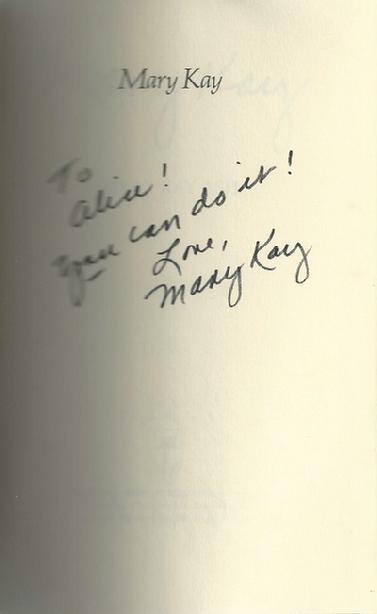 Mary Kay
To
Alice!
You can do it!
Love,
Mary Kay